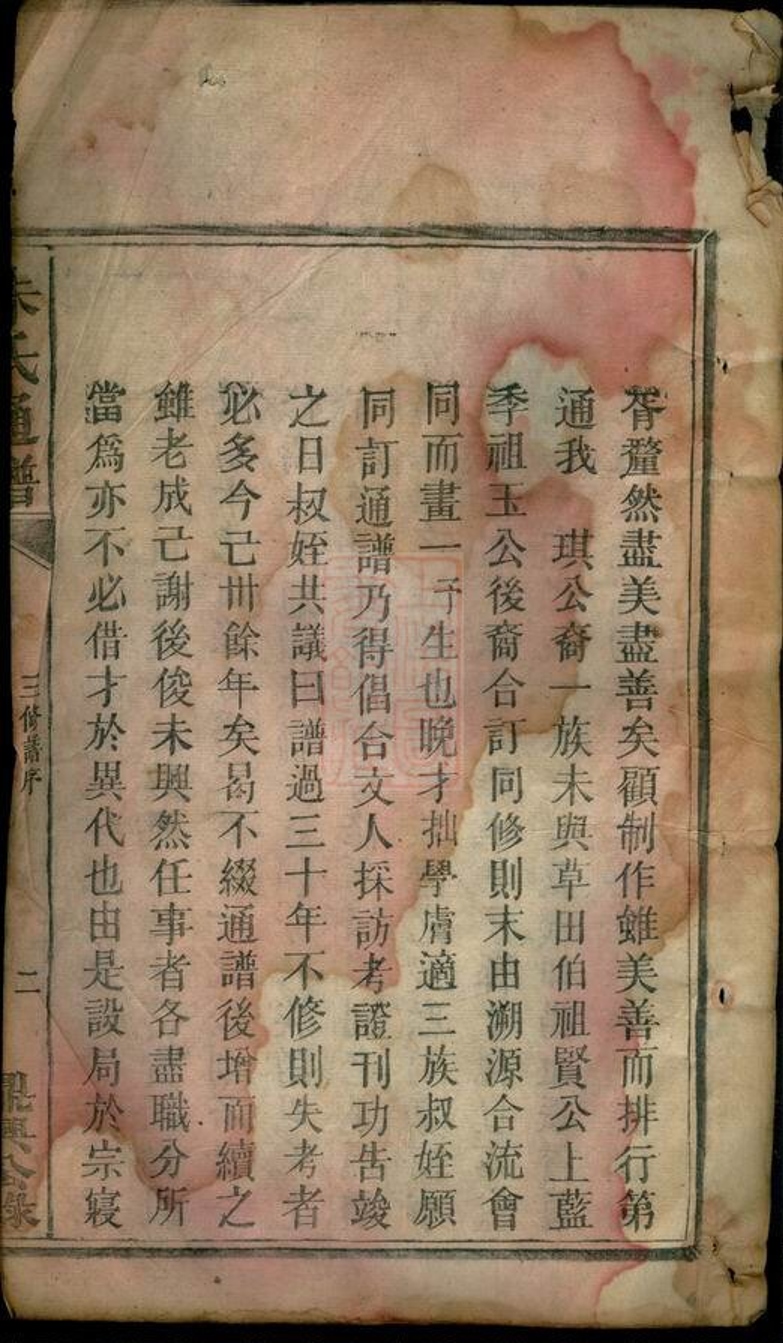 胥釐然盡美盡善矣顧制作雖美善而排行第
通我 琪公裔一族未與草田伯祖賢公上藍
季祖玉公後裔合訂同修則末由溯源合流會
同而畫一予生也晚才拙學膚適三族叔姪願
同訂通譜乃得倡合文人採訪考證刊功告竣
之日叔姪共議曰譜過三十年不修則失考者
必多今已卅餘年矣曷不綴通譜後增而續之
雖老成已謝後俊未興然任事者各盡職分所
當爲亦不必借才於異代也由是設局於宗寢
氏通譜
三修譜序
二